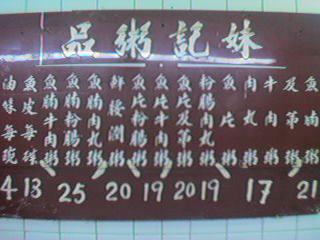 妹記粥品
魚腩粥
及第粥
牛肉粥
肉丸粥
魚片粥
粉腸肉丸粥
魚片及第粥
魚片肉丸粥
魚片粉腸粥
鮮腰潤粥
魚腩肉丸粥
魚腩粉腸粥
魚腩牛肉粥
魚皮每碟
油 每碗
21
17
19
20
19
20
25
13
4